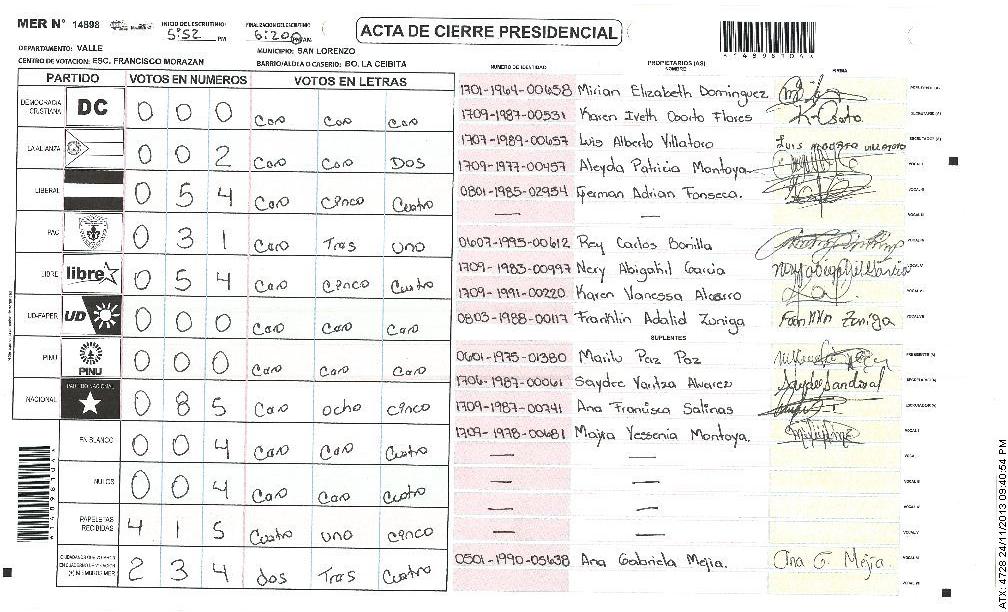 MER N° 14898 INICIO DEL ESCRUTINIO: 5:52 PM FINALIZACION DEL ESCRUTINIO 6:20 PM
ACTA DE CIERRE PRESIDENCIAL
DEPARTAMENTO: VALLE MUNICIPIO: SAN LORENZO
CENTRO DE VOTACION: ESC. FRANCISCO MORAZAN BARRIO/ALDEA O CASERIO: BO. LA CEIBITA
PARTIDO VOTOS EN NUMEROS VOTOS EN LETRAS
DEMOCRACIA CRISTIANA DC 0 0 0 Cero Cero Cero
LA ALIANZA 0 0 2 Cero Cero Dos
LIBERAL 0 5 4 Cero Cinco Cuatro
PAC 0 3 1 Cero Tres uno
LIBRE libre 0 5 4 Cero Cinco Cuatro
UD-FAPER UD 0 0 0 Cero Cero Cero
PINU PINU 0 0 0 Cero Cero Cero
NACIONAL PARTIDO NACIONAL 0 8 5 Cero ocho cinco
EN BLANCO 0 0 4 Cero Cero Cuatro
NULOS 0 0 4 Cero Cero Cuatro
PAPELETAS RECIBIDAS 4 1 5 Cuatro uno cinco
2 3 4 dos Tres Cuatro
NUMERO DE IDENTIDAD PROPIETARIOS (AS) NOMBRE FIRMA
1701-1964-00658 Mirian Elizabeth Dominguez
1709-1987-00531 Karen Iveth Osorto Flores
1707-1989-00657 Luis Alberto Villatoro
1709-1977-00457 Aleyda Patricia Montoya
0801-1985-02954 German Adrian Fonseca.
0607-1995-00612 Rey Carlos Bonilla
1709-1983-00997 Nery Abigail Garcia
1709-1991-00220 Karen Vanessa Alvarro
0803-1988-00117 Franklin Adalid Zuniga
SUPLENTES
0601-1975-01380 Marilu Paz Paz
1706-1987-00061 Saydre Yaritza Alvarez
1709-1987-00741 Ana Francisca Salinas
1709-1978-00681 Majra Yessenia Montoya.
0501-1990-05638 Ana Gabriela Mejia. Ana G. Mejia.
ATX: 4728 24/11/2013 09:40:54 PM